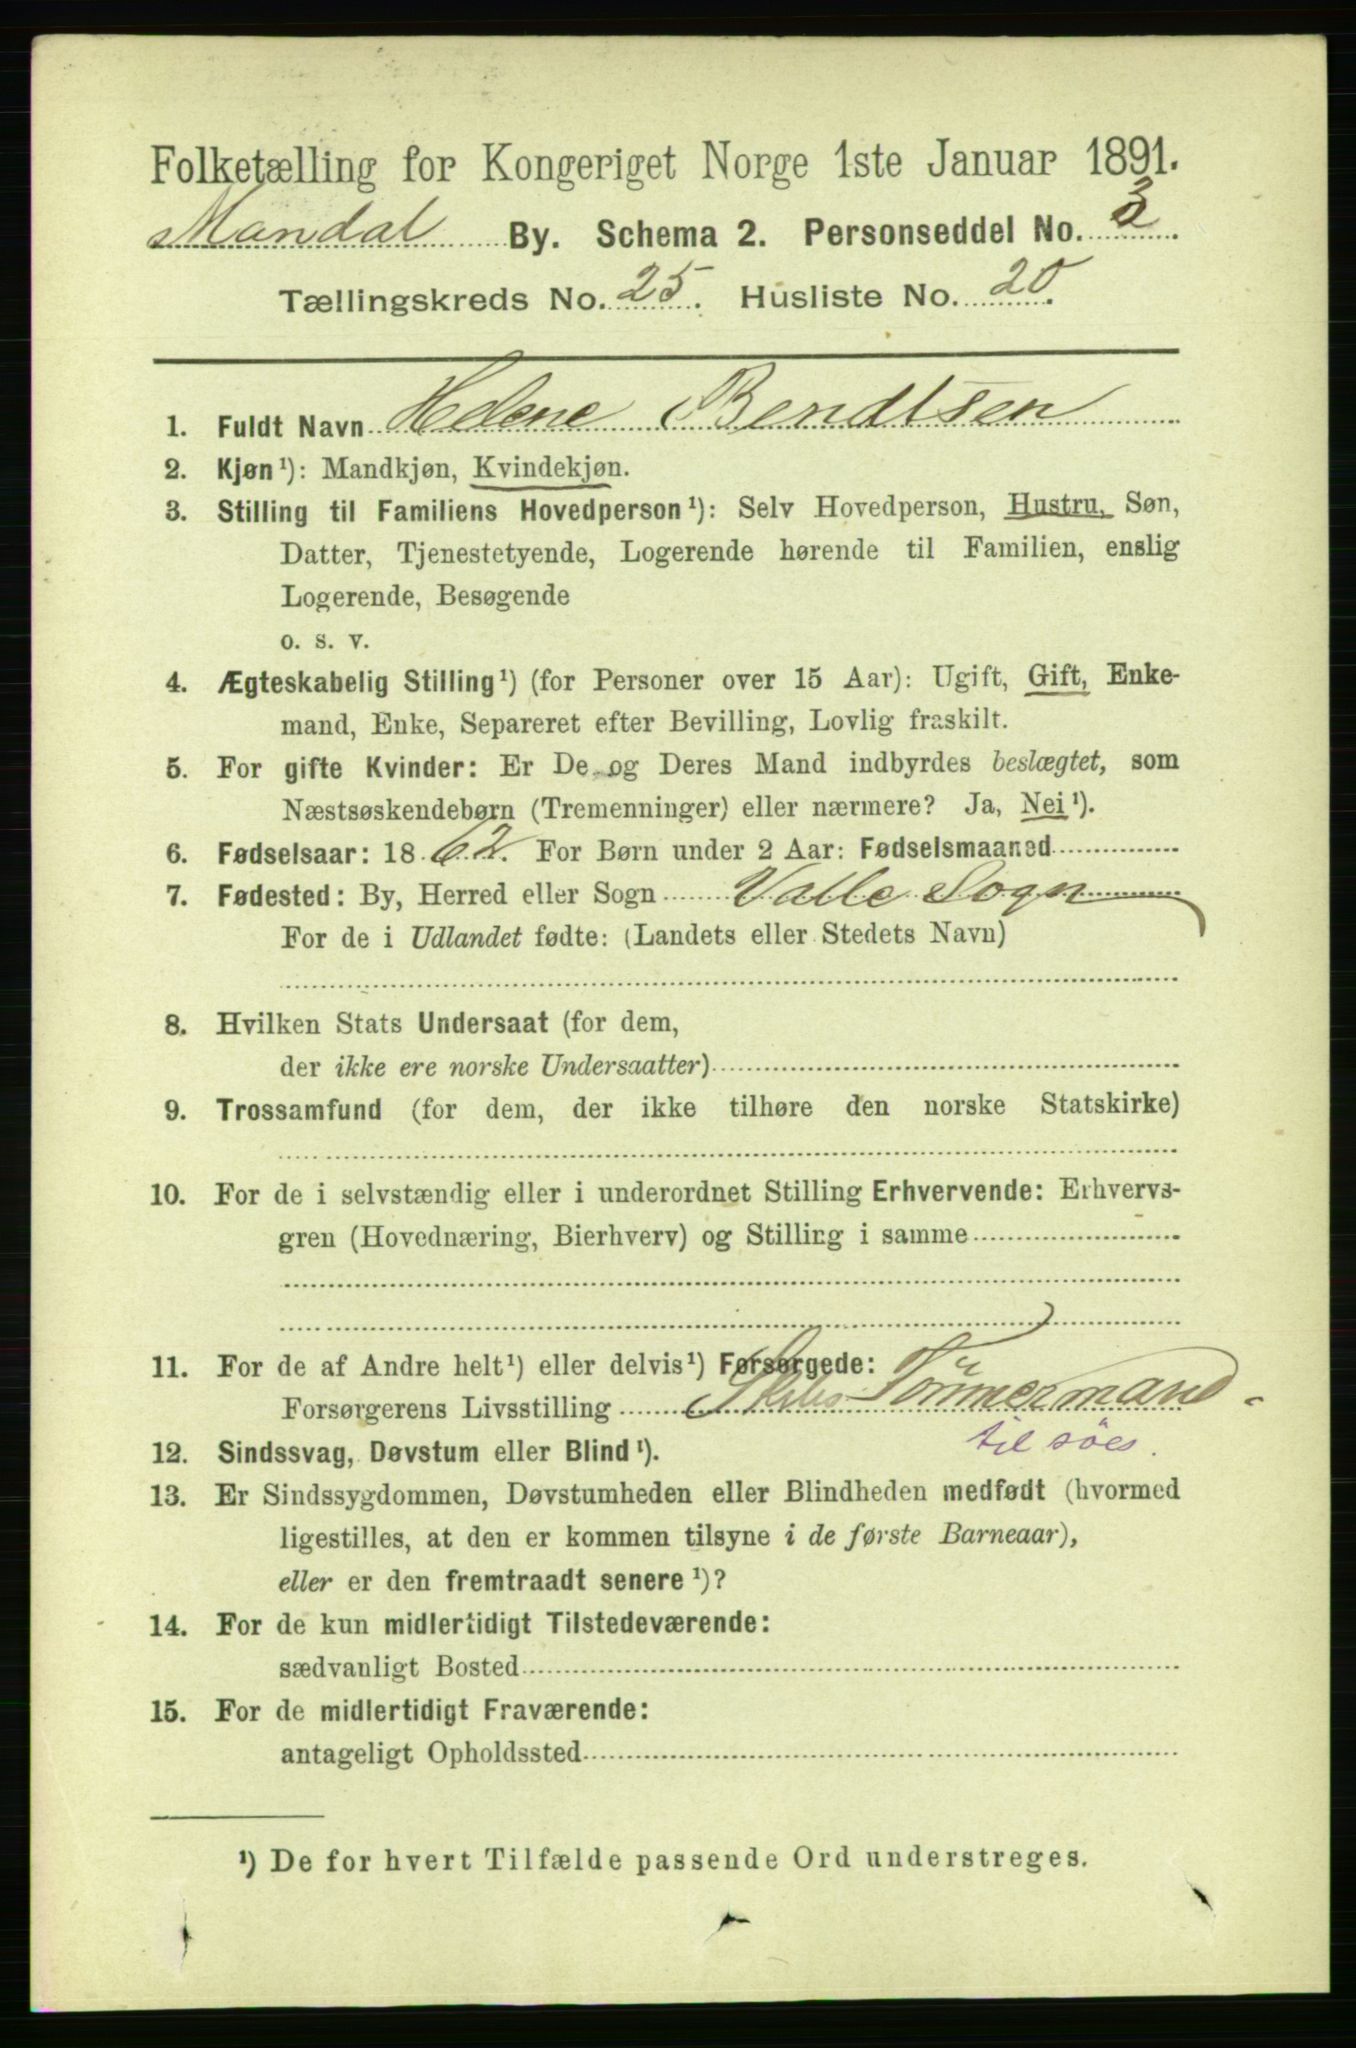 Folketælling for Kongeriget Norge 1ste Januar 1891.
Mandal By. Schema 2. Personseddel No. 3
Tællingskreds No. 25. Husliste No. 20.
1. Fuldt Navn Helene Bendtsen
2. Kjøn¹): Mandkjøn, Kvindekjøn.
3. Stilling til Familiens Hovedperson¹): Selv Hovedperson, Hustru, Søn,
Datter, Tjenestetyende, Logerende hørende til Familien, enslig
Logerende, Besøgende
o. s. v.
4. Ægteskabelig Stilling¹) (for Personer over 15 Aar): Ugift, Gift, Enke-
mand, Enke, Separeret efter Bevilling, Lovlig fraskilt.
5. For gifte Kvinder: Er De og Deres Mand indbyrdes beslægtet, som
Næstsøskendebørn (Tremenninger) eller nærmere? Ja, Nei¹).
6. Fødselsaar: 1862. For Børn under 2 Aar: Fødselsmaaned
7. Fødested: By, Herred eller Sogn Valle Sogn
For de i Udlandet fødte: (Landets eller Stedets Navn)
8. Hvilken Stats Undersaat (for dem,
der ikke ere norske Undersaatter)
9. Trossamfund (for dem, der ikke tilhøre den norske Statskirke)
10. For de i selvstændig eller i underordnet Stilling Erhvervende: Erhvervs-
gren (Hovednæring, Bierhverv) og Stilling i samme
11. For de af Andre helt¹) eller delvis¹) Forsørgede:
Forsørgerens Livsstilling Skibs Tömmermand
til söes.
12. Sindssvag, Døvstum eller Blind¹).
13. Er Sindssygdommen, Døvstumheden eller Blindheden medfødt (hvormed
ligestilles, at den er kommen tilsyne i de første Barneaar),
eller er den fremtraadt senere¹)?
14. For de kun midlertidigt Tilstedeværende:
sædvanligt Bosted
15. For de midlertidigt Fraværende:
antageligt Opholdssted
¹) De for hvert Tilfælde passende Ord understreges.